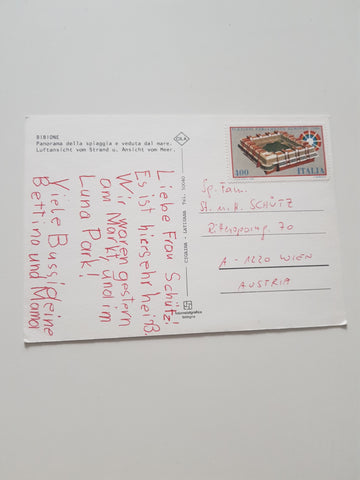 BIBIONE
Panorama della spiaggia e veduta dal mare.
Luftansicht vom Strand u. Ansicht vom Meer.
Liebe Frau Schütz!
Es ist hier sehr heiß.
Wir waren gestern
am Markt und im
Luna Park!
Viele Bussi deine
Bettina und Mama
400
ITALIA
St. u. H. SCHÜTZ
70
A - 1220 WIEN
AUSTRIA